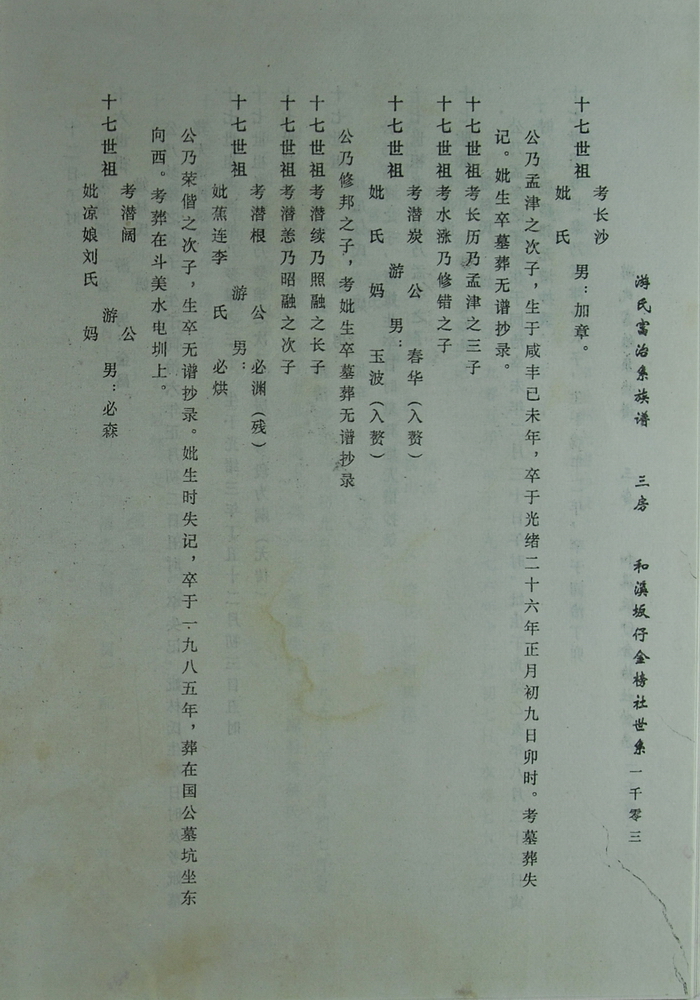 游氏富治系族谱 三房 和溪坂仔金榜社世系 一千零三
考长沙
十七世祖 男：加章。
妣 氏
公乃孟津之次子，生于咸丰已未年，卒于光绪二十六年正月初九日卯时。考墓葬失
记。妣生卒墓葬无谱抄录。
十七世祖考长历乃孟津之三子
十七世祖考水涨乃修错之子
考潜炭 公 春华（入赘）
十七世祖 游 男：
妣 氏 妈 玉波（入赘）
公乃修邦之子，考妣生卒墓葬无谱抄录
十七世祖考潜续乃照融之长子
十七世祖考潜恙乃昭融之次子
考潜根 公 必渊（残）
十七世祖 游 男：
妣蕉连李 氏 必烘
公乃荣偕之次子，生卒无谱抄录。妣生时失记，卒于一九八五年，葬在国公墓坑坐东
向西。考葬在斗美水电圳上。
考潜阔 公
十七世祖 游 男：必森
妣凉娘刘氏 妈